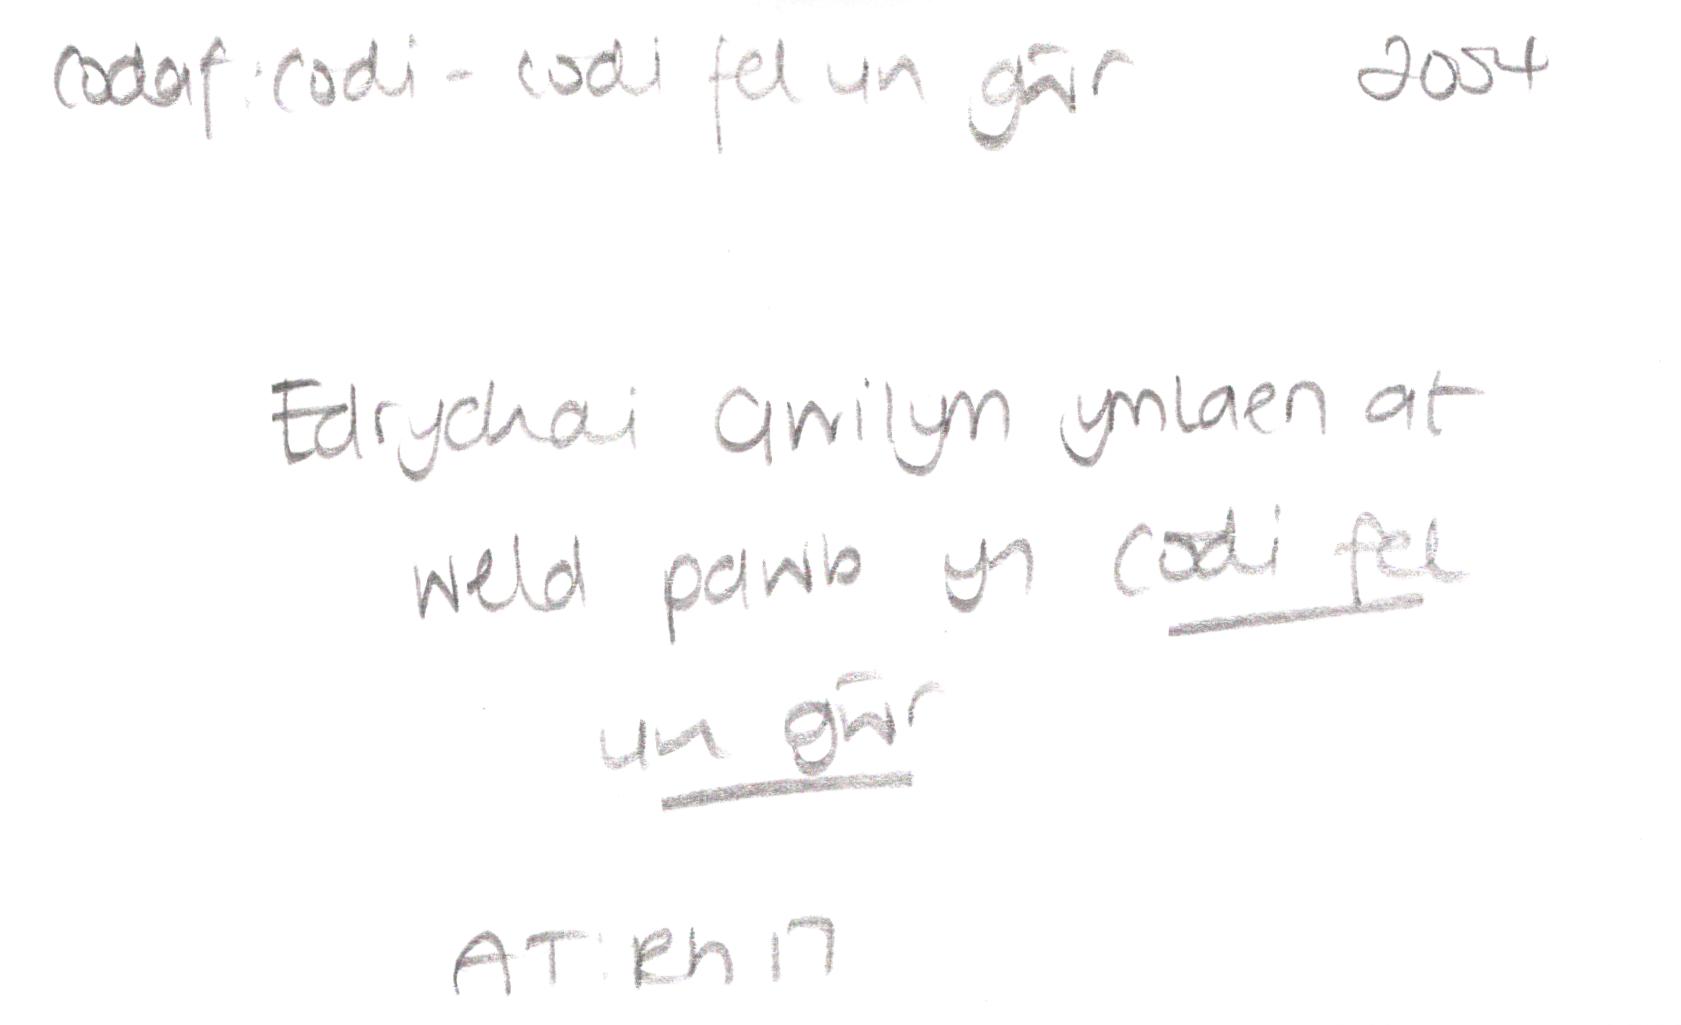 codaf: codi - codi fel un gŵr 2054
Edrychai Gwilym ymlaen at
weld pawb yn codi fel
un gŵr
AT: Rh 17